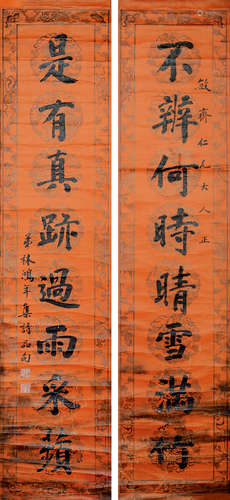 不辨何時晴雪滿竹
筱齋仁兄大人正
是有真跡過雨采蘋
弟林鴻年集詩品句